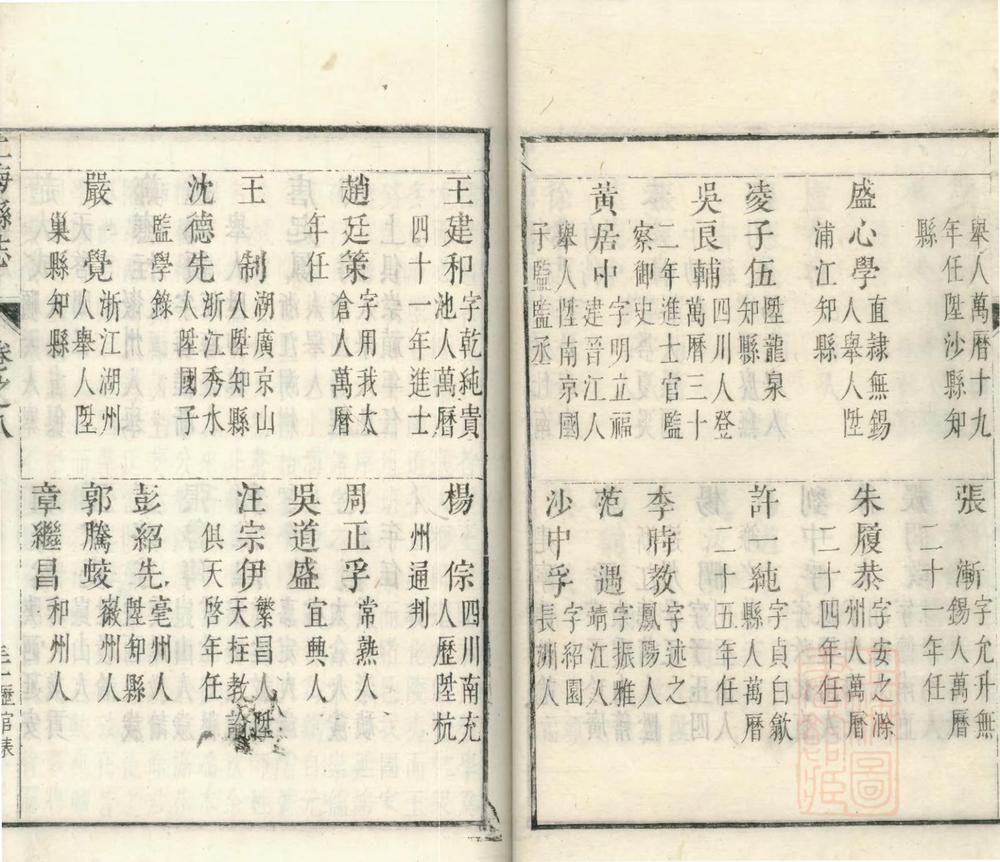 舉人萬曆十九
年任陞沙縣知
縣
盛心學直隷無錫
人舉人陞
浦江知縣
凌子伍陞龍泉
知縣
吳良輔四川人登
萬曆三十
二年進士官監
察御史
黃居中字明立福
建晉江人
舉人陞南京國
子監監丞
張漸字允升無
錫人萬曆
二十一年任
朱履恭字安之滁
州人萬曆
二十四年任
許一純字貞白歙
縣人萬曆
二十五年任
李時教字述之
鳳陽人
范遇字振雅
靖江人
沙中孚字紹園
長洲人
王建和字乾純貴
池人萬曆
四十一年進士
趙廷策字用我太
倉人萬曆
年任
王制湖廣京山
人陞知縣
沈德先浙江秀水
人陞國子
監學錄
嚴覺浙江湖州
人舉人陞
巢縣知縣
楊倧四川南充
人歷陞杭
州通判
周正孚常熟人
吳道盛宜興人
汪宗伊繁昌人陞
天柱教諭
俱天啓年任
彭紹先亳州人
陞知縣
郭騰蛟徽州人
章繼昌和州人
上海縣志
卷之八
歷官表